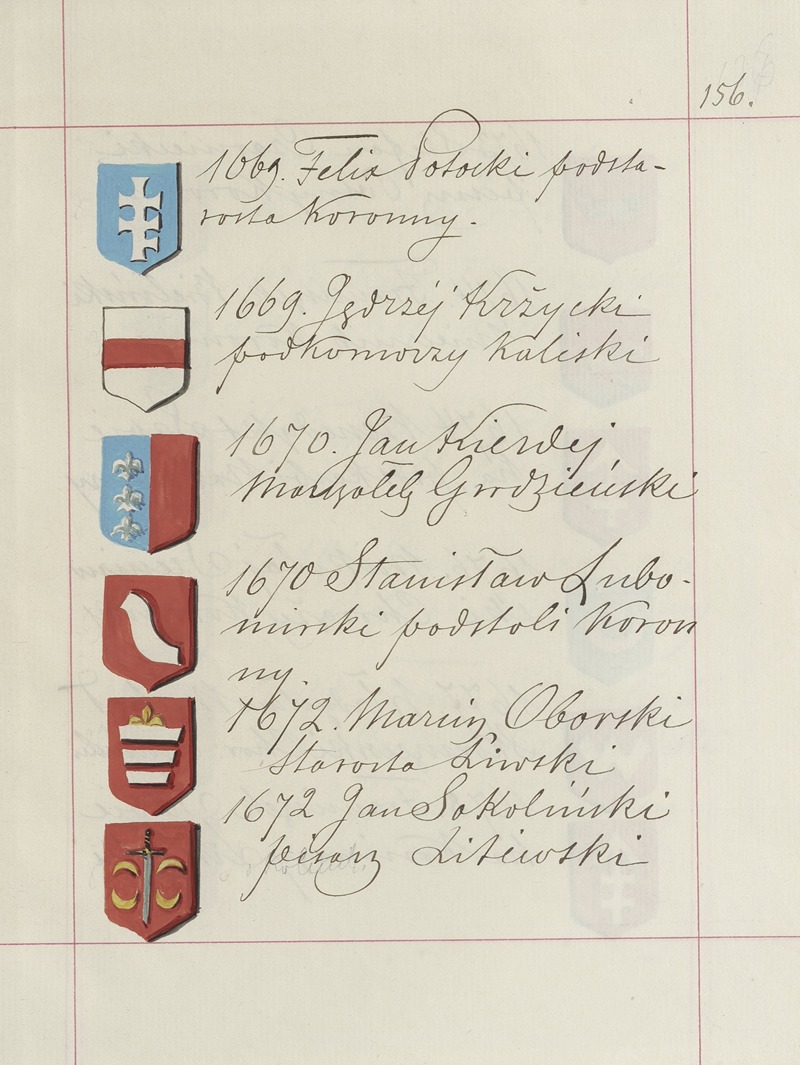 156.
1669. Felix Potocki podsta-
rosta Koronny.
1669. Jędrzéj Krżycki
podkomorzy Kaliski
1670. Jan Kierdej
Marszałek Grodzieński
1670 Stanisław Lubo-
mirski podstoli Koron
ny.
1672. Marcin Oborski
Starosta Liwski
1672 Jan Sokoliński
pisarz Litewski